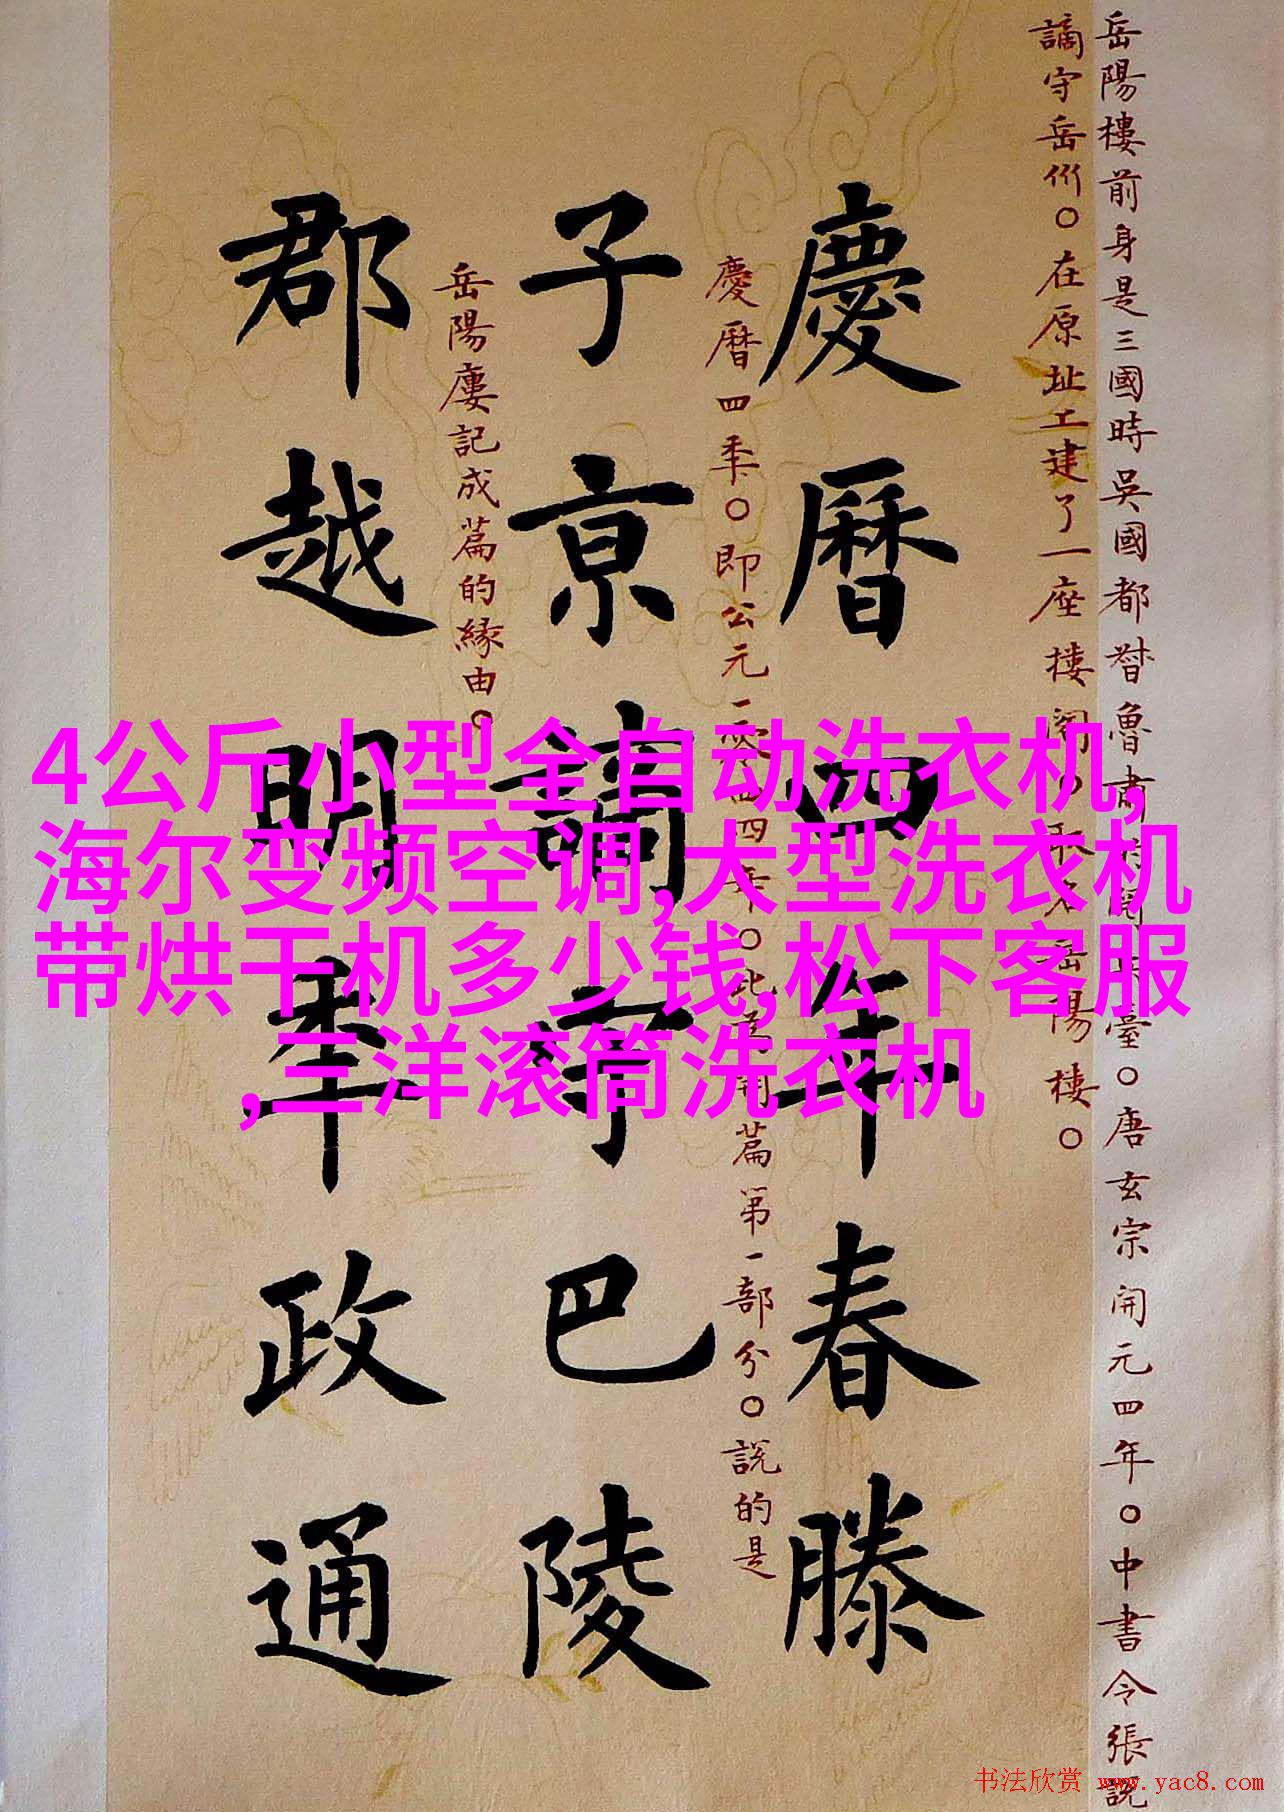 岳陽樓前身是三國時吳國都督魯肅閱兵臺。唐玄宗開元四年。中書令張說
謫守岳州。在原址上建了一座樓閣。取名岳陽樓。
慶曆四年春滕
慶曆四年。即公元一〇四四年。此為開篇第一部分。說的是
子京謫守巴陵
岳陽樓記成篇的緣由。
郡越明年政通
4公斤小型全自动洗衣机,
海尔变频空调,大型洗衣机
带烘干机多少钱,松下客服
,三洋滚筒洗衣机
书法欣赏 www.yac8.com